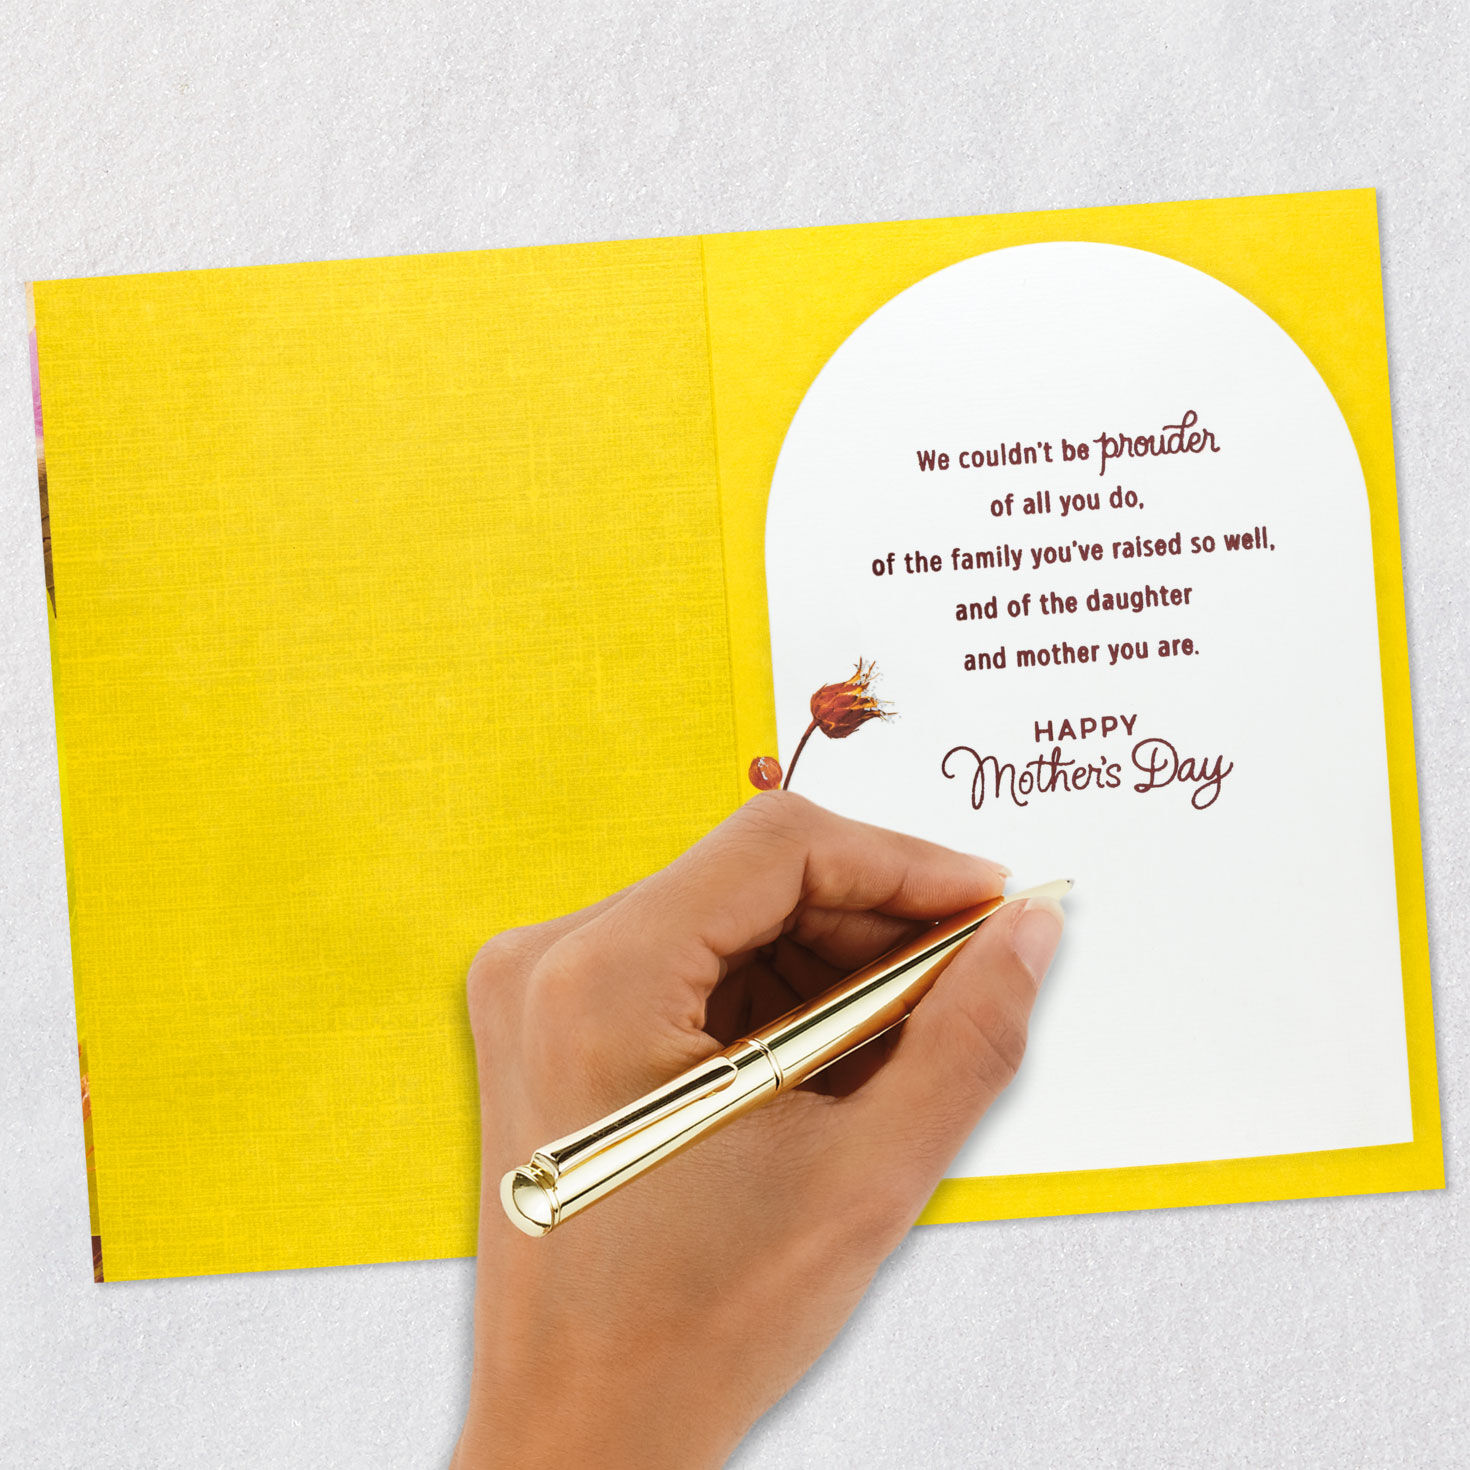 We couldn't be prouder
of all you do,
of the family you've raised so well,
and of the daughter
and mother you are.
HAPPY
Mother's Day